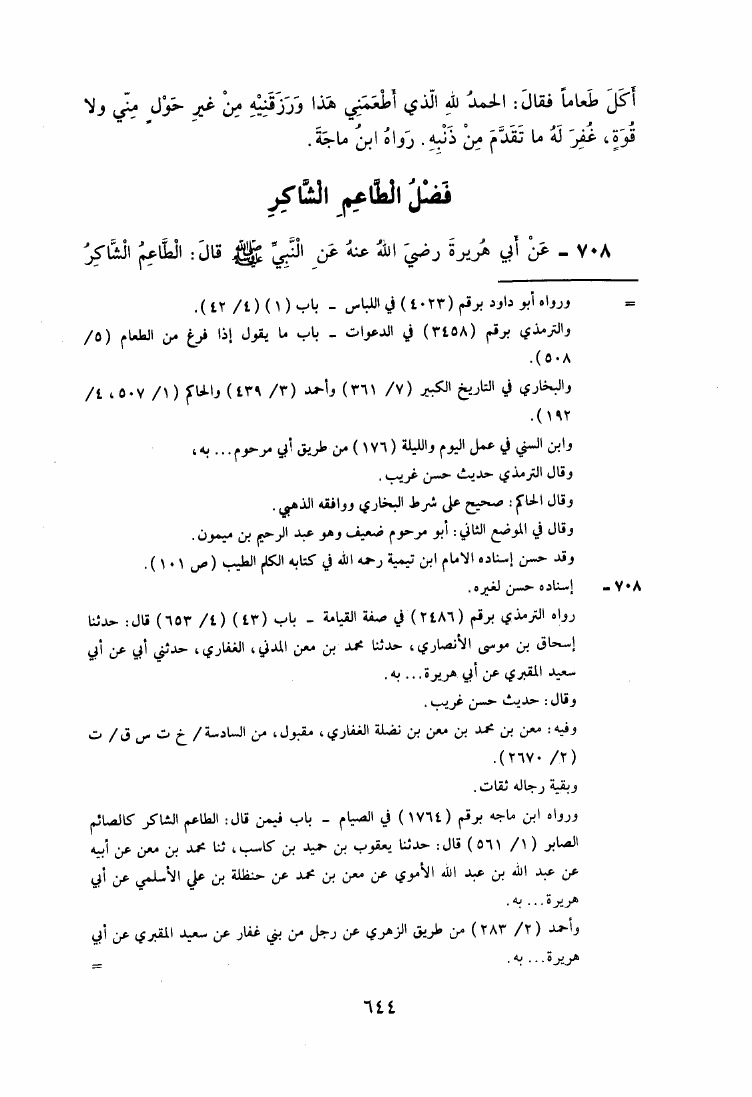 أَكَلَ طَعاماً فقالَ: الحمدُ للهِ الّذي أَطْعَمَنِي هَذا وَرَزَقَنِيْهِ مِنْ غيرِ حَوْلٍ مِنّي ولا
قُوَةٍ، غُفِرَ لَهُ ما تَقَدَّمَ مِنْ ذَنْبِهِ. رَواهُ ابنُ ماجَةَ.
فَضْلُ الْطَّاعِمِ الْشَّاكِرِ
٧٠٨ - عَنْ أَبي هُريرةَ رضيَ اللهُ عنهُ عَنِ الْنَّبِيِّ ﷺ قالَ: الْطَّاعِمُ الْشَّاكِرُ
= ورواه أبو داود برقم (٤٠٢٣) في اللباس - باب (١) (٤/ ٤٢).
والترمذي برقم (٣٤٥٨) في الدعوات - باب ما يقول إذا فرغ من الطعام (٥/
٥٠٨).
والبخاري في التاريخ الكبير (٧/ ٣٦١) وأحمد (٣/ ٤٣٩) والحاكم (١/ ٥٠٧، ٤/
١٩٢).
وابن السني في عمل اليوم والليلة (١٧٦) من طريق أبي مرحوم... به،
وقال الترمذي حديث حسن غريب.
وقال الحاكم: صحيح على شرط البخاري ووافقه الذهبي.
وقال في الموضع الثاني: أبو مرحوم ضعيف وهو عبد الرحيم بن ميمون.
وقد حسن إسناده الامام ابن تيمية رحمه الله في كتابه الكلم الطيب (ص ١٠١).
٧٠٨ - إسناده حسن لغيره.
رواه الترمذي برقم (٢٤٨٦) في صفة القيامة - باب (٤٣) (٤/ ٦٥٣) قال: حدثنا
إسحاق بن موسى الأنصاري، حدثنا محمد بن معن المدني، الغفاري، حدثني أبي عن أبي
سعيد المقبري عن أبي هريرة... به.
وقال: حديث حسن غريب.
وفيه: معن بن محمد بن معن بن نضلة الغفاري، مقبول، من السادسة/ خ ت س ق/ ت
(٢/ ٢٦٧٠).
وبقية رجاله ثقات.
ورواه ابن ماجه برقم (١٧٦٤) في الصيام - باب فيمن قال: الطاعم الشاكر كالصائم
الصابر (١/ ٥٦١) قال: حدثنا يعقوب بن حميد بن كاسب، ثنا محمد بن معن عن أبيه
عن عبد الله بن عبد الله الأموي عن معن بن محمد عن حنظلة بن علي الأسلمي عن أبي
هريرة... به.
وأحمد (٢/ ٢٨٣) من طريق الزهري عن رجل من بني غفار عن سعيد المقبري عن أبي
هريرة... به. =
٦٤٤